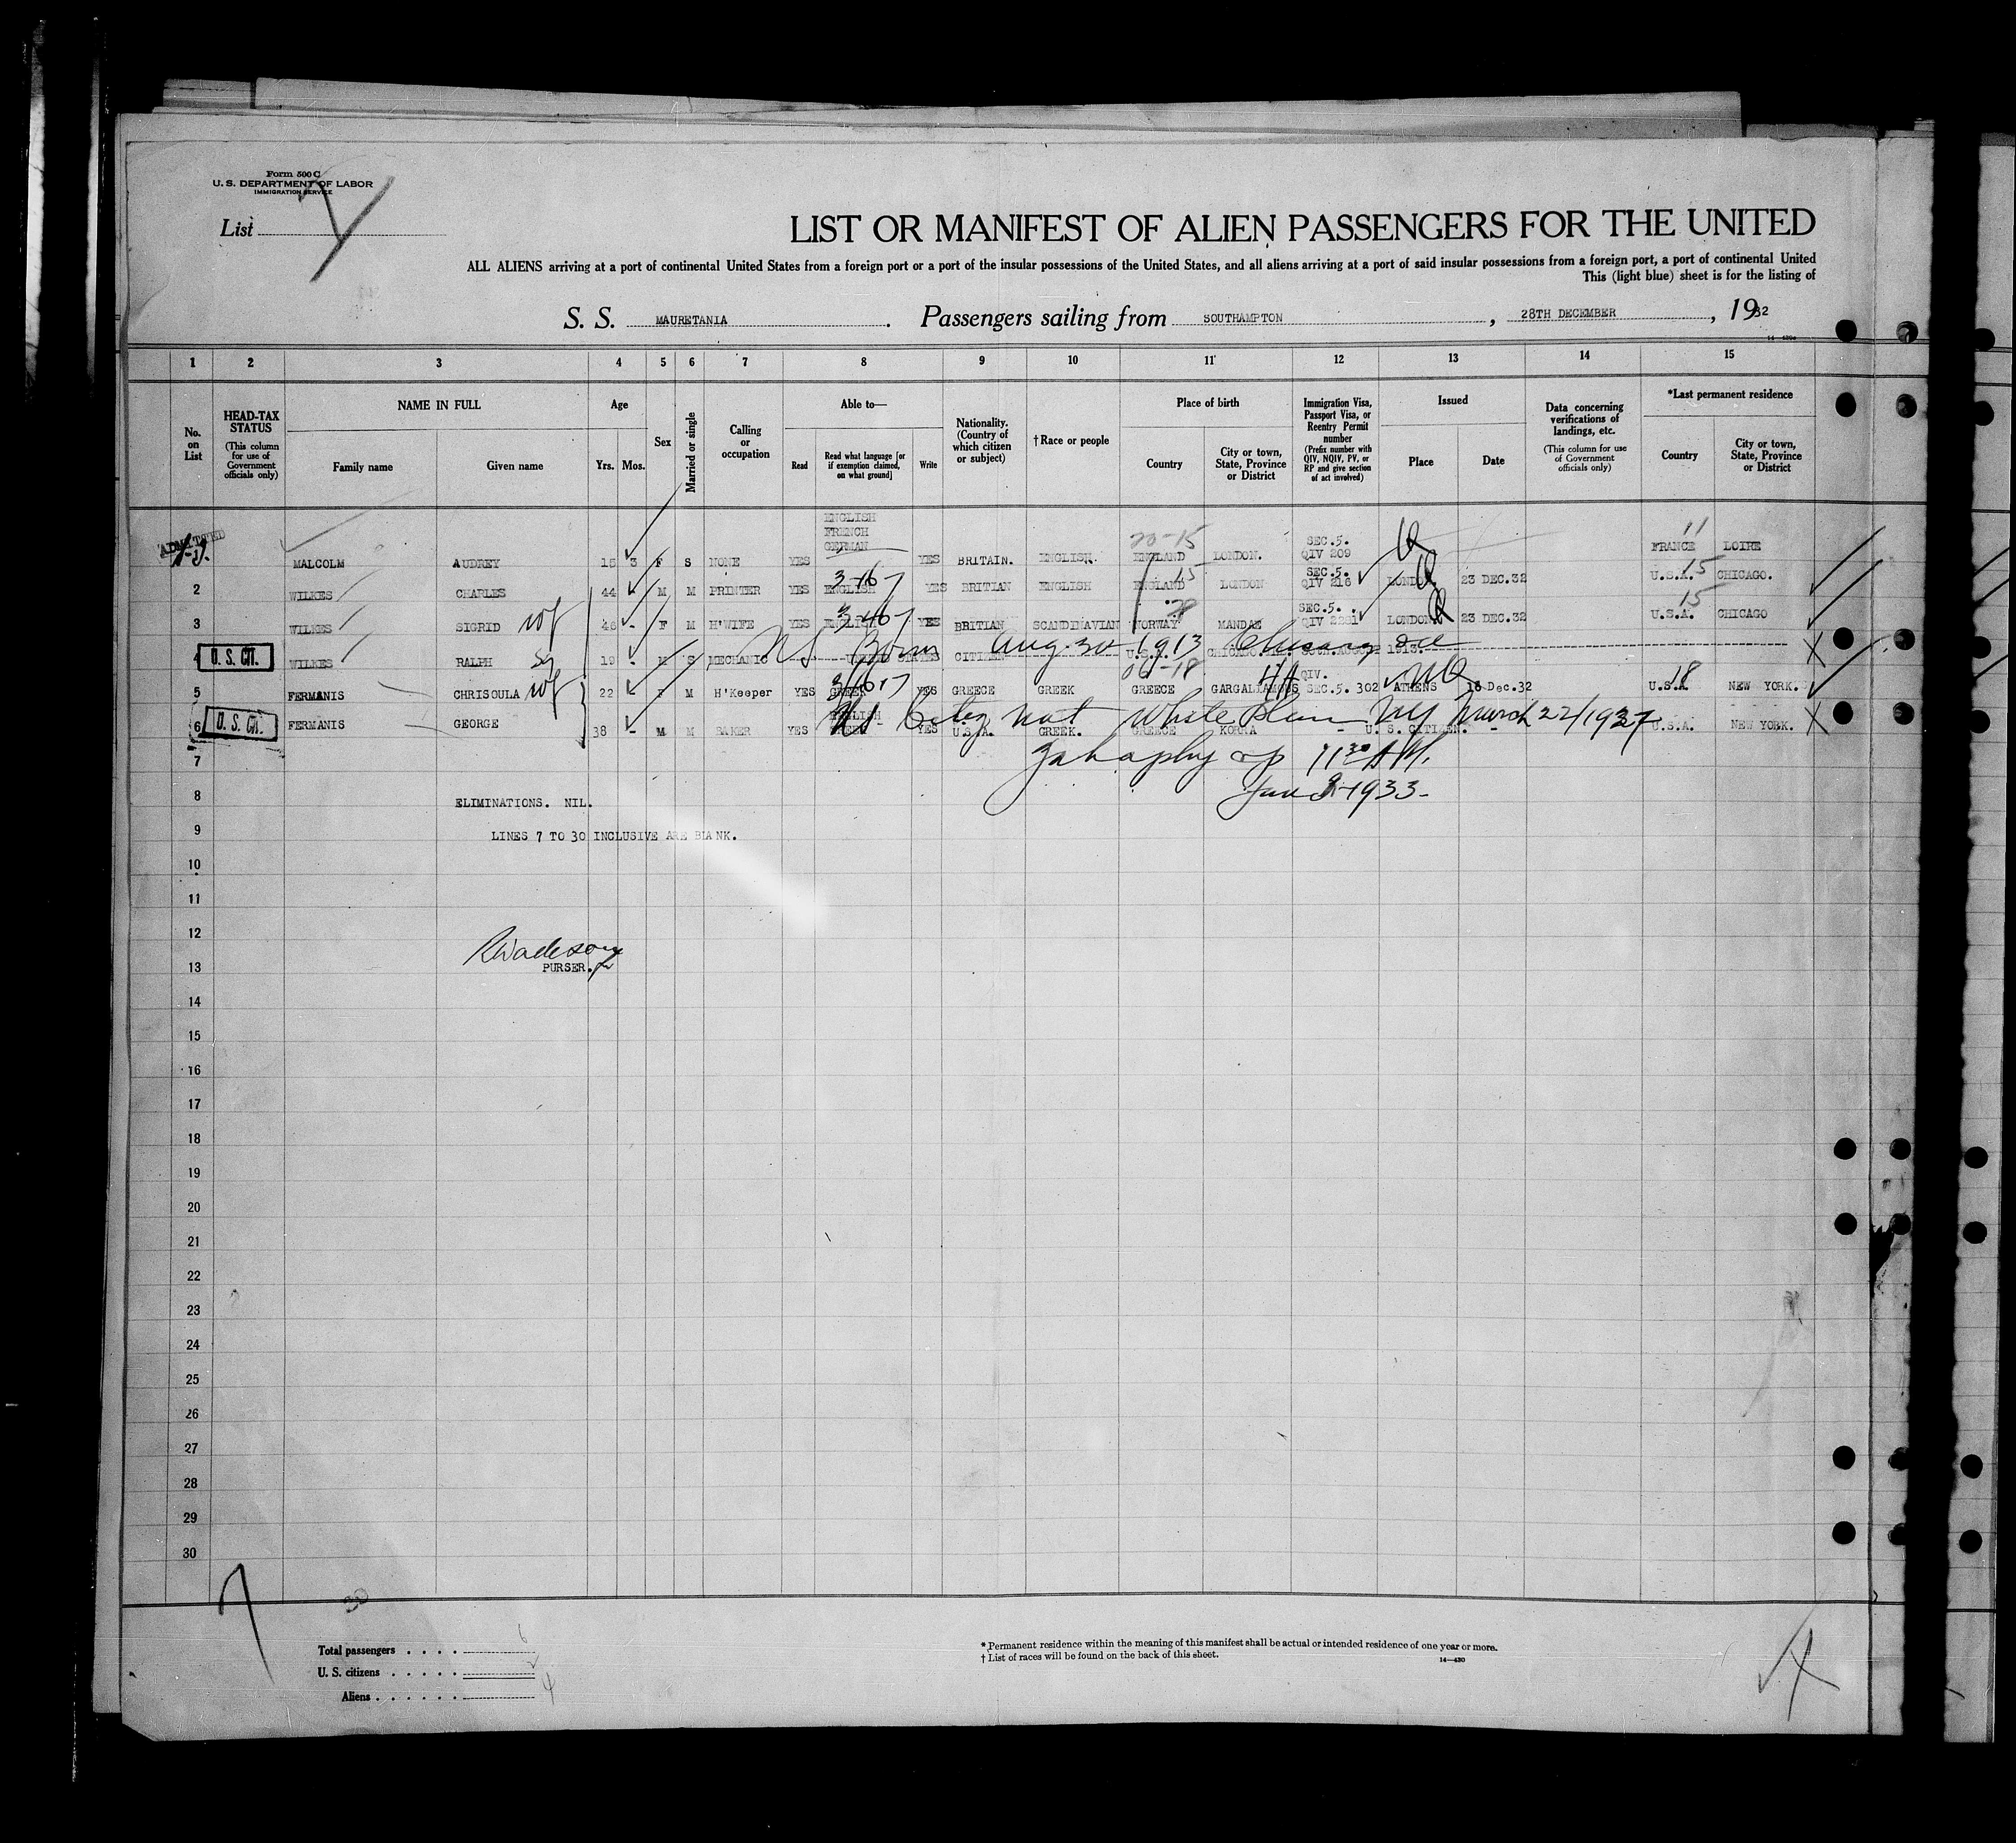 Form 500 C
U. S. DEPARTMENT OF LABOR
IMMIGRATION SERVICE
List
LIST OR MANIFEST OF ALIEN PASSENGERS FOR THE UNITED
ALL ALIENS arriving at a port of continental United States from a foreign port or a port of the insular possessions of the United States, and all aliens arriving at a port of said insular possessions from a foreign port, a port of continental United
This (light blue) sheet is for the listing of
S. S. MAURETANIA. Passengers sailing from SOUTHAMPTON, 28TH DECEMBER, 1932
1 2 3 4 5 6 7 8 9 10 11 12 13 14 15
No. on List
HEAD-TAX STATUS (This column for use of Government officials only)
NAME IN FULL Family name Given name
Age Yrs. Mos.
Sex
Married or single
Calling or occupation
Able to— Read Read what language [or if exemption claimed, on what ground] Write
Nationality. (Country of which citizen or subject)
† Race or people
Place of birth Country City or town, State, Province or District
Immigration Visa, Passport Visa, or Reentry Permit number (Prefix number with QIV, NQIV, PV, or RP and give section of act involved)
Issued Place Date
Data concerning verifications of landings, etc. (This column for use of Government officials only)
*Last permanent residence Country City or town, State, Province or District
ADMITTED MALCOLM AUDREY 15 3 F S NONE YES ENGLISH FRENCH GERMAN YES BRITAIN. ENGLISH. 20-15 ENGLAND LONDON. SEC.5. QIV 209 11 FRANCE LOIRE
2 WILKES CHARLES 44 M M PRINTER YES ENGLISH YES BRITIAN ENGLISH 15 ENGLAND LONDON SEC.5. QIV 216 LONDON 23 DEC.32 15 U.S.A. CHICAGO.
3 WILKES SIGRID wf 48 - F M H'WIFE YES ENGLISH YES BRITIAN SCANDINAVIAN NORWAY MANDAL SEC.5. QIV 2281 LONDON 23 DEC.32 15 U.S.A. CHICAGO
4 U. S. CIT. WILKES RALPH 19 - M S MECHANIC CITIZEN U.S.A. CHICAGO 1913.
US Born Aug. 30 1913 Chicago Ill
5 FERMANIS CHRISOULA wf 22 F M H'Keeper YES GREEK YES GREECE GREEK GREECE QIV. SEC.5. 302 ATHENS 16 Dec.32 18 U.S.A. NEW YORK.
6 U. S. CIT. FERMANIS GEORGE 38 - M M BAKER YES ENGLISH GREEK YES U.S.A. GREEK. GREECE KORRA - U. S. CITIZEN. - U.S.A. NEW YORK.
US Citz Nat White Plain NY March 22/1927
7
11 30 AM.
8 ELIMINATIONS. NIL.
Jan 3-1933-
9 LINES 7 TO 30 INCLUSIVE ARE BLANK.
10
11
12
13 PURSER.
14
15
16
17
18
19
20
21
22
23
24
25
26
27
28
29
30
30
Total passengers . . . . 6
U. S. citizens . . . . . 2
Aliens . . . . . . 4
* Permanent residence within the meaning of this manifest shall be actual or intended residence of one year or more.
† List of races will be found on the back of this sheet.
14—430